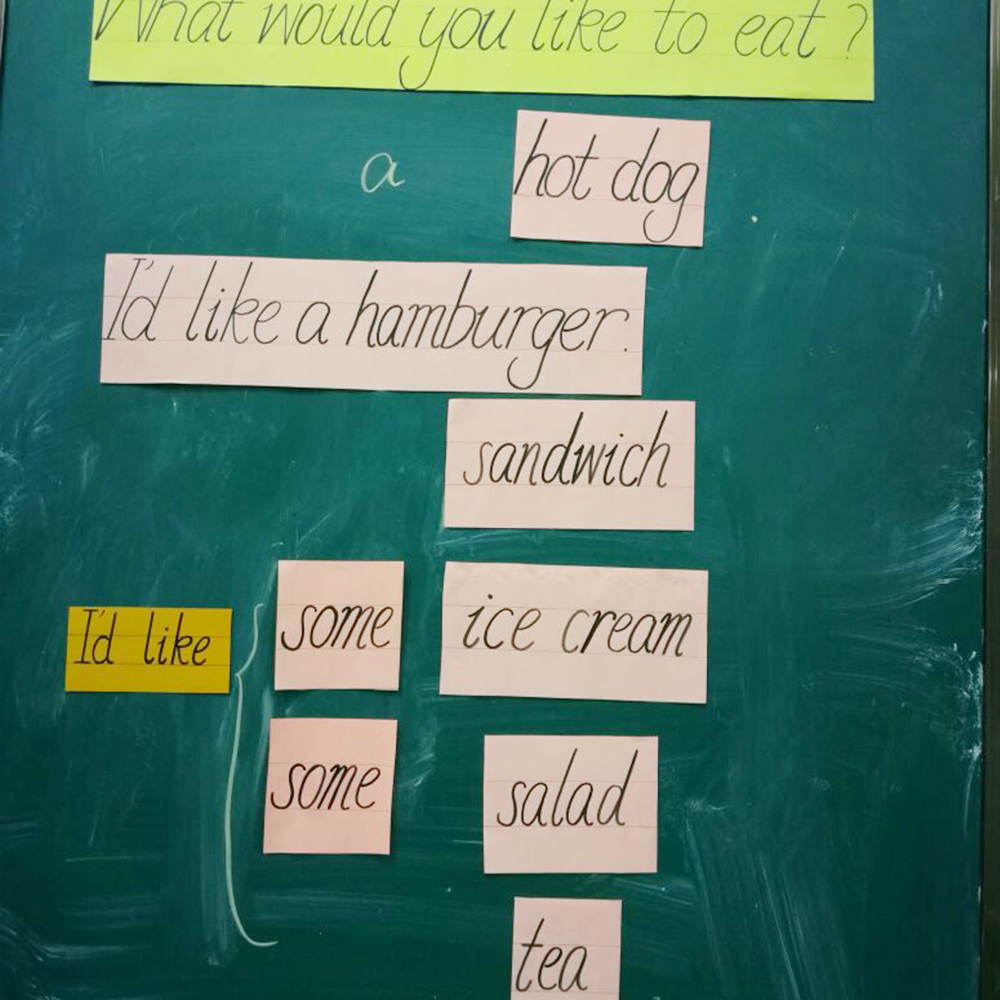 What would you like to eat?
a hot dog
I'd like a hamburger.
sandwich
some ice cream
I'd like
some salad
tea